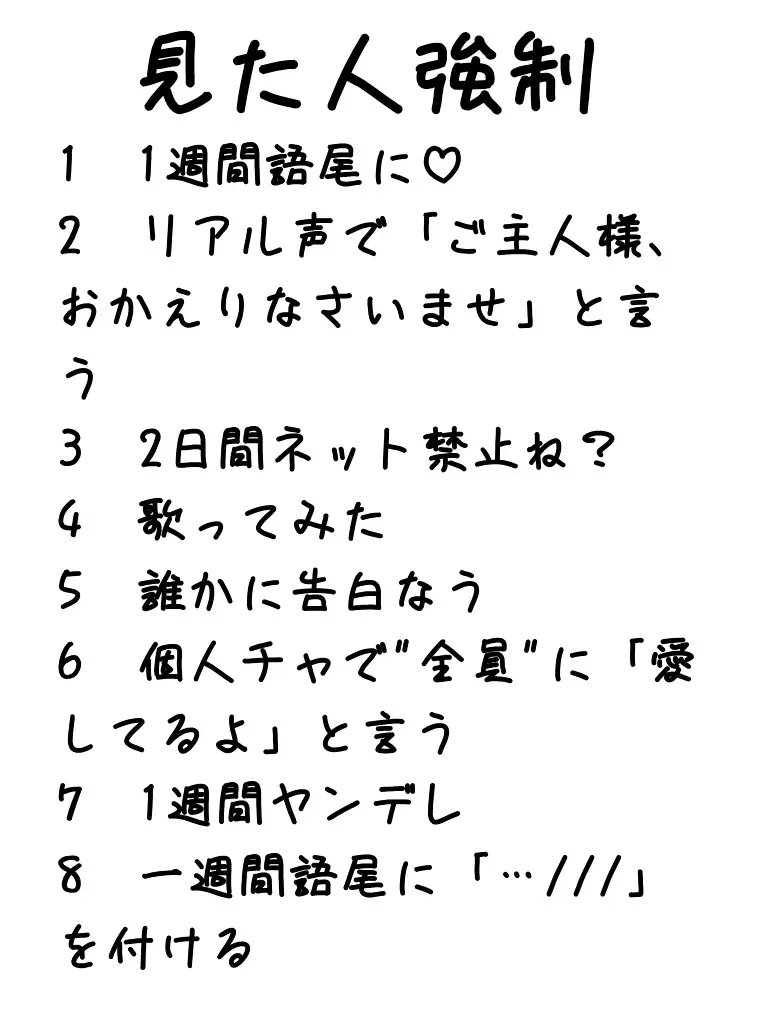 見た人強制
1 1週間語尾に♡
2 リアル声で「ご主人様、
おかえりなさいませ」と言
う
3 2日間ネット禁止ね？
4 歌ってみた
5 誰かに告白なう
6 個人チャで"全員"に「愛
してるよ」と言う
7 1週間ヤンデレ
8 一週間語尾に「…///」
を付ける